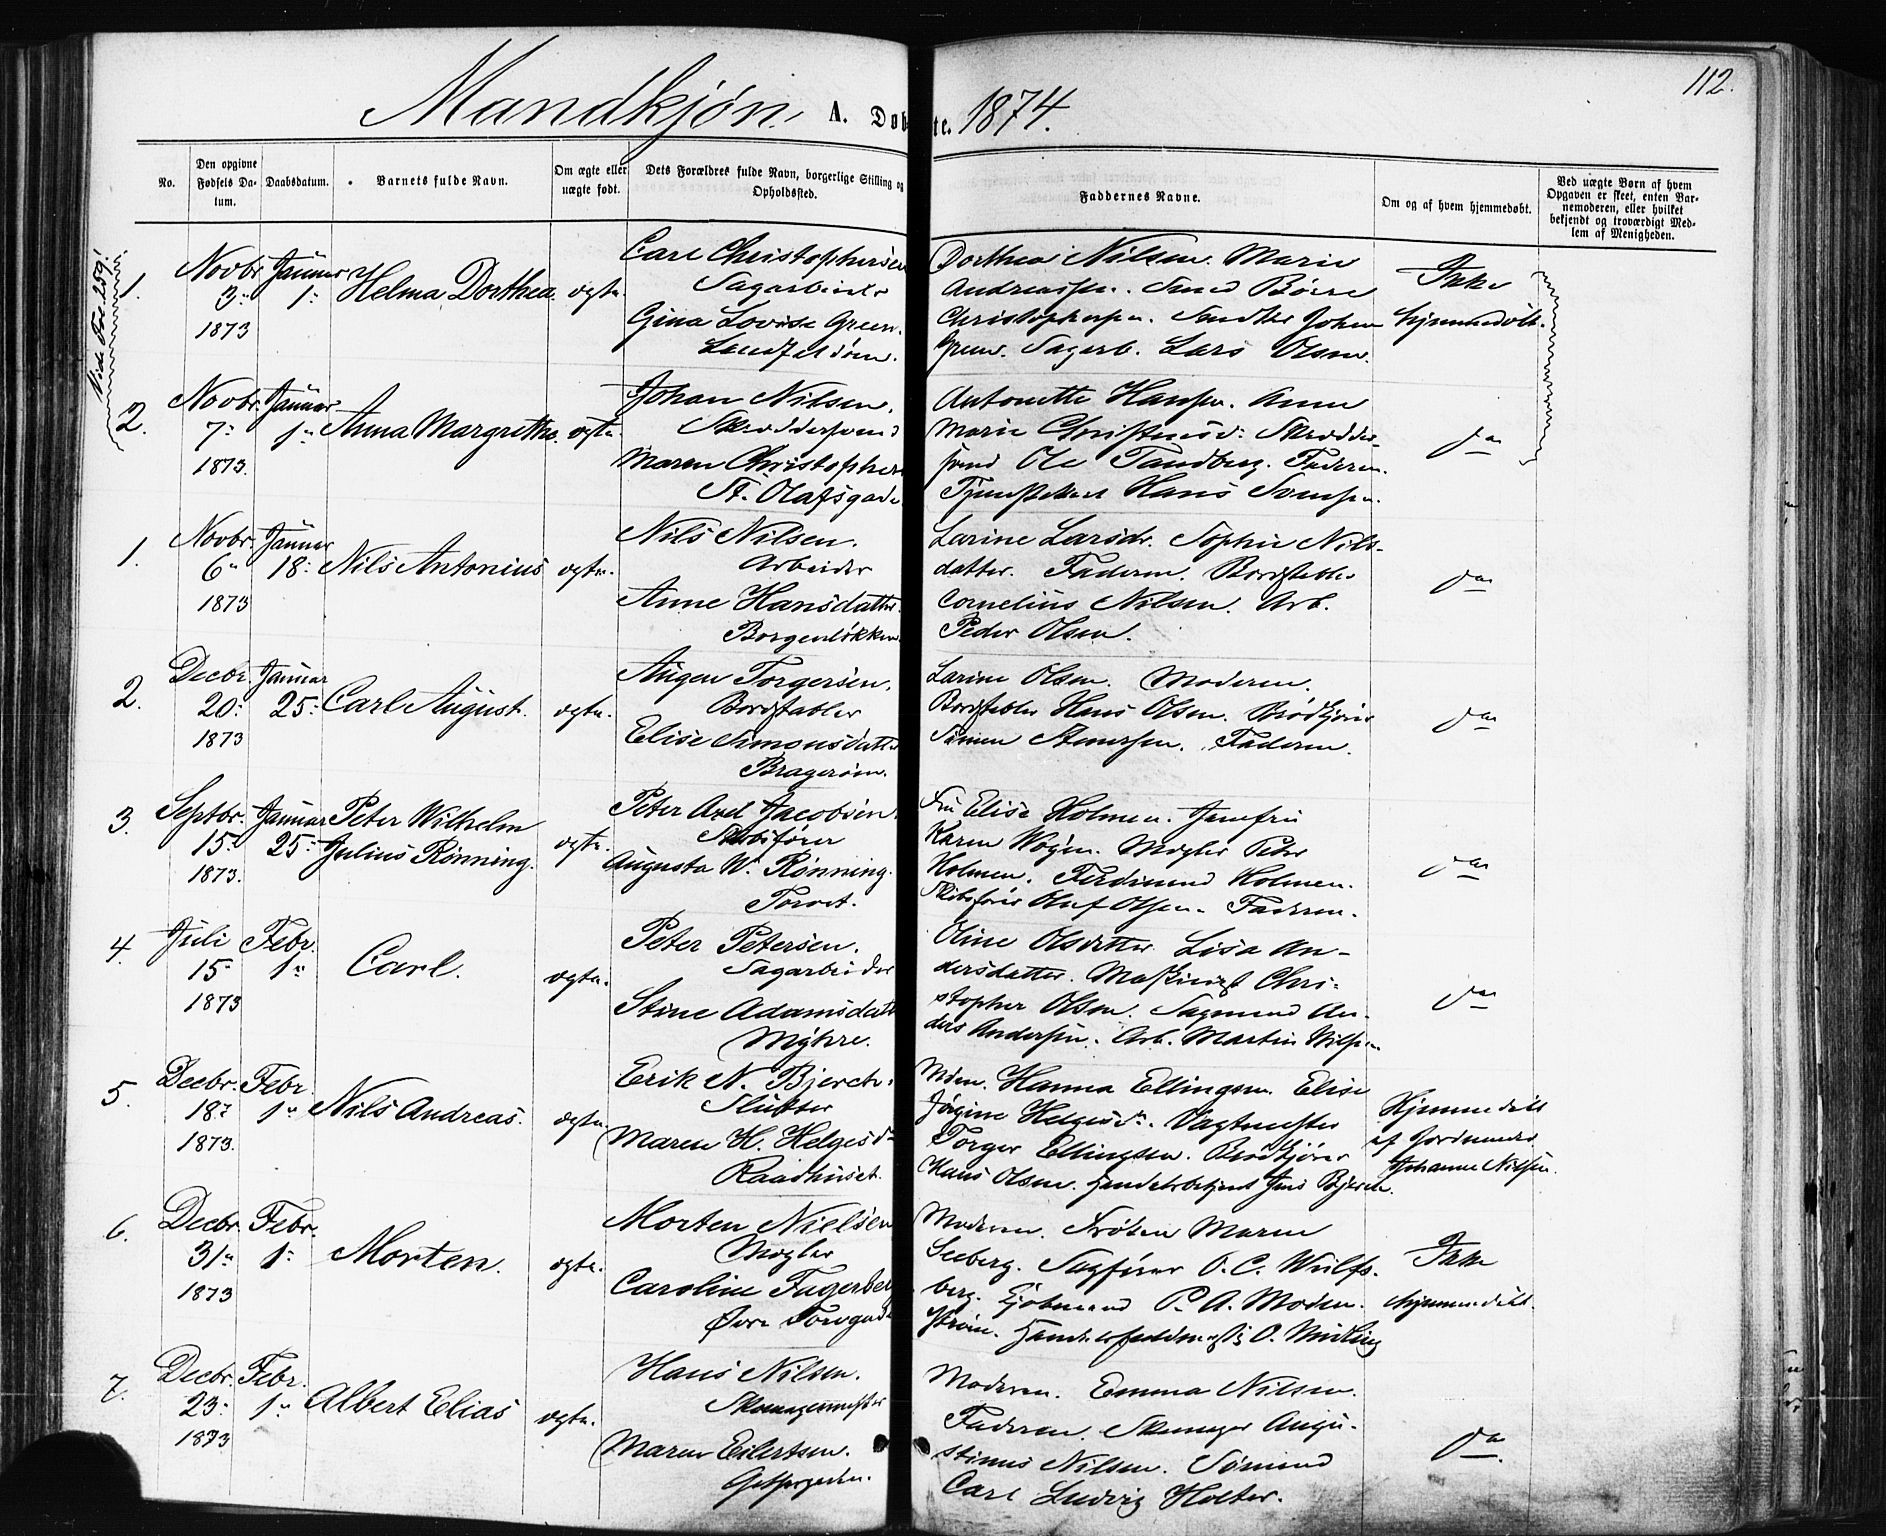 112.
Mandkjön. A. Døbte. 1874.
No.
Den opgivne Fødsels Datum.
Daabsdatum.
Barnets fulde Navn.
Om ægte eller uægte født.
Dets Forældres fulde Navn, borgerlige Stilling og Opholdssted.
Faddernes Navne.
Om og af hvem hjemmedøbt.
Ved uægte Børn af hvem Opgaven er skeet, enten Barnemoderen, eller hvilket bekjendt og troværdigt Medlem af Menigheden.
Vide Fol. 259!
1. Novbr. 3 1873
Januar 1
Helma Dorthea
ægte.
Carl Christophersen
Sagarbeider
Gina Lovise Green.
Landfaldöen.
Dorthea Nilsen. Marie
Andreassen. Smed Börre
Christophersen. Johan
Green. Sagarb. Lars Olsen.
Ikke
hjemmedöbt.
2. Novbr. 7 1873.
Januar 1
Anna Margrethe.
ægte.
Johan Nilsen.
Skræddersvend
Maren Christophers
St. Olafsgade
Antonette Hansen. Anne
Marie Christensd. Skrædder-
svend Ole Tandberg. Faderen.
Hans Svensen.
do
1. Novbr. 6 1873
Januar 18
Nils Antonius
ægte.
Nils Nilsen.
Arbeider
Anne Hansdatter.
Borgerlökken
Larine Larsdr. Sophie Nils-
datter. Faderen. Bordstabler
Cornelius Nilsen. Arb.
Peder Olsen.
do
2. Decbr. 20 1873
Januar 25
Carl August.
ægte.
Augen Torgersen.
Bordstabler
Elise Simonsdatt.
Bragerøen.
Larine Olsen. Moderen.
Bordstabler Hans Olsen. Brödkjörer
Simen Stenersen. Faderen.
do
3. Septbr. 15 1873.
Januar 25
Peter Wilhelm
Julius Rønning.
ægte.
Peter Axel Jacobsen
Skibsfører
Augusta W. Rønning.
Torvet.
Fru Elise Holmen. Jomfru
Karen Wogen. Mægler Peter
Holmen. Ferdinand Holmen.
Skibsförer Oluf Olsen. Faderen.
do
4. Juli 15 1873
Febr. 1
Carl.
ægte.
Peter Petersen.
Sagarbeider
Stine Adamsdatt
Myhre.
Oline Olsdatter. Lisa An-
dersdatter. Maskinist Chri-
stopher Olsen. Sagmand An-
ders Andersen. Arb. Martin Nilsen.
do
5. Decbr. 18 1873.
Febr. 1
Nils Andreas.
ægte
Erik N. Bjerch.
Slutter
Maren H. Helgesd
Raadhuset.
Mden. Hanna Ellingsen. Elise
Jörgine Helgesd. Vagtmester
Torger Ellingsen. Brödkjörer
Hans Olsen. Handelsbetjent Jens Bjerch.
Hjemmedöbt
af Jordmoder
Johanne Nilsen.
6. Decbr. 31 1873
Febr. 1
Morten.
ægte.
Morten Nielsen
Mægler
Caroline Fagerberg
Øvre Torvgade
Moderen. Fröken Maren
Seeberg. Sagförer O. C. Wulfs-
berg. Kjöbmand P. A. Moden.
Ikke
hjemmedöbt.
7. Decbr. 23 1873
Febr. 1
Albert Elias
ægte.
Hans Nilsen.
Skomagermester
Maren Eilertsen.
Moderen. Emma Nilsen.
Faderen. Skomager Augu-
stinus Nilsen. Sömand
Carl Ludvig Holter.
do